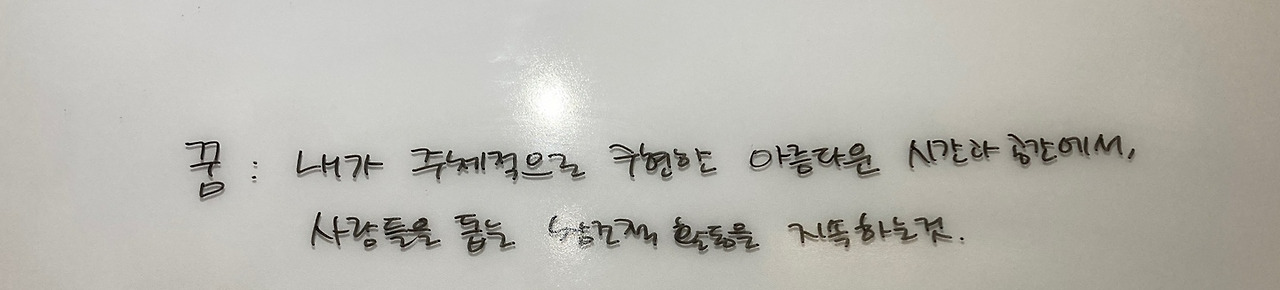 꿈 : 내가 주체적으로 구현한 아름다운 시간과 공간에서,
사람들을 돕는 활동을 지속하는것.